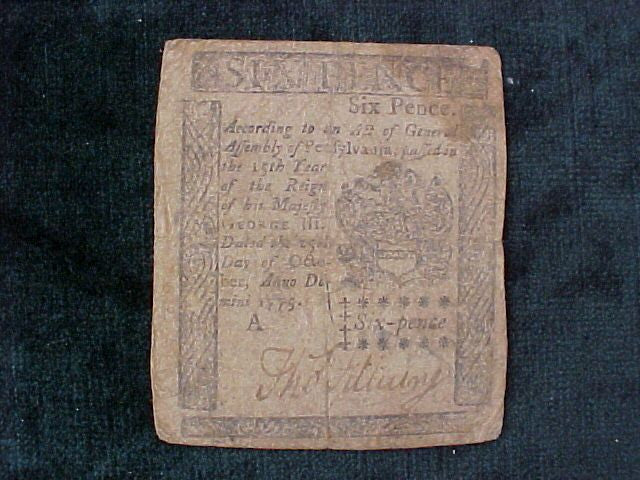 SIX PENCE
Six Pence.
According to an Act of General
Assembly of Pennsylvania, passed in
the 15th Year
of the Reign
of his Majesty
GEORGE III.
Dated the 25th
Day of Octo-
ber, Anno Do-
mini 1775.
A
Six-pence
Tho